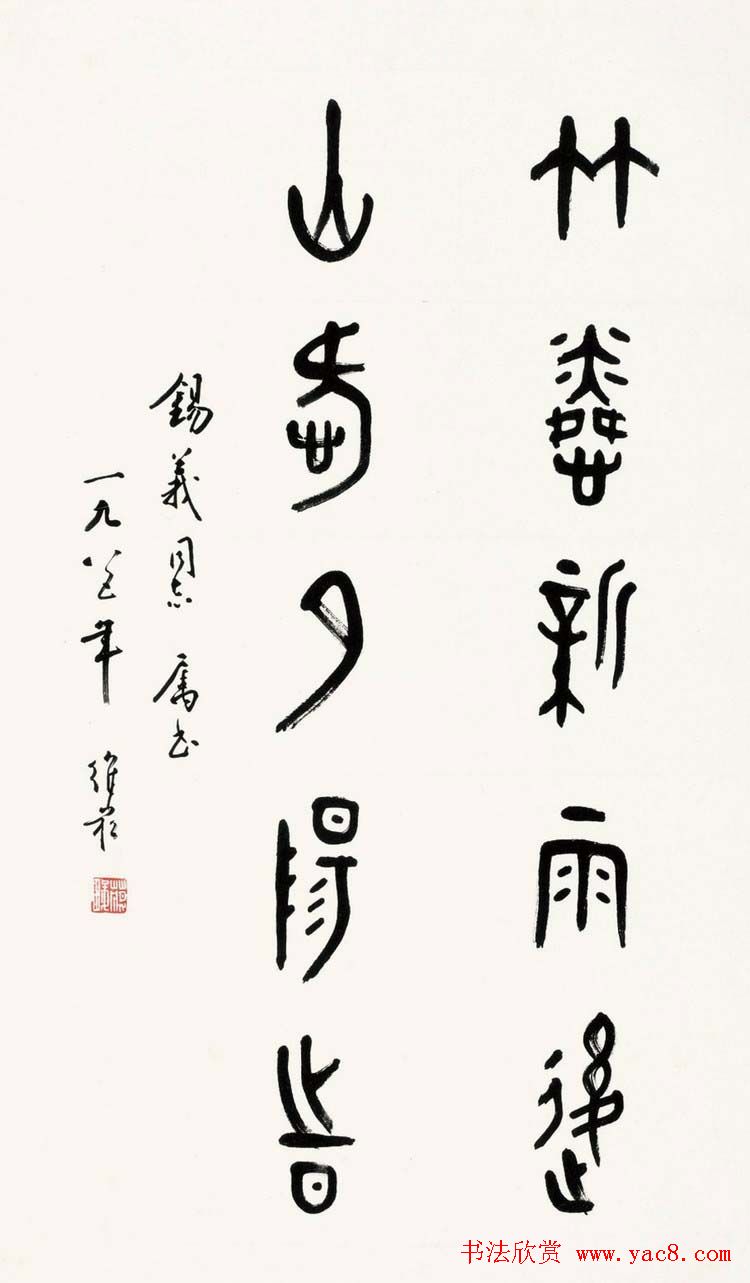 竹憐新雨後
山愛夕陽時
錫義同志 屬書
一九八五年 維崧
书法欣赏 www.yac8.com